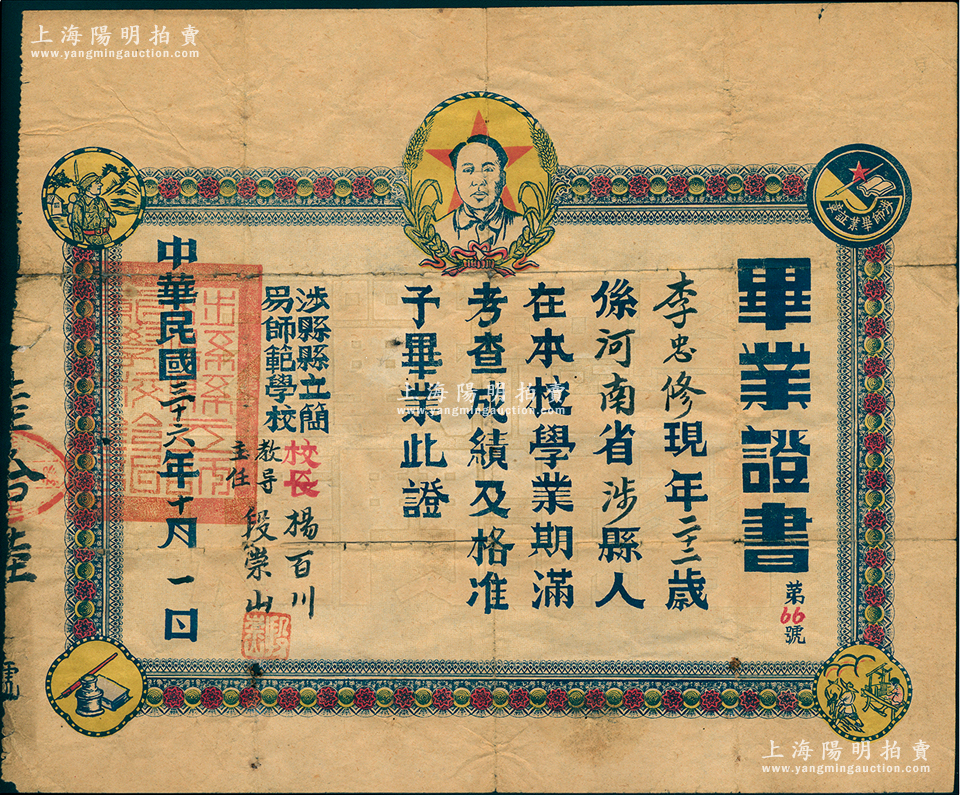 上海陽明拍賣
www.yangmingauction.com
畢業證書
第66號
李忠修現年二十二歲
係河南省涉縣人
在本校學業期滿
考查成績及格准
予畢業此證
涉縣縣立簡
易師範學校
校長 楊百川
教导
主任 段崇山
中華民國三十六年十月一日
上海陽明拍賣
www.yangmingauction.com
上海陽明拍賣
www.yangmingauction.com